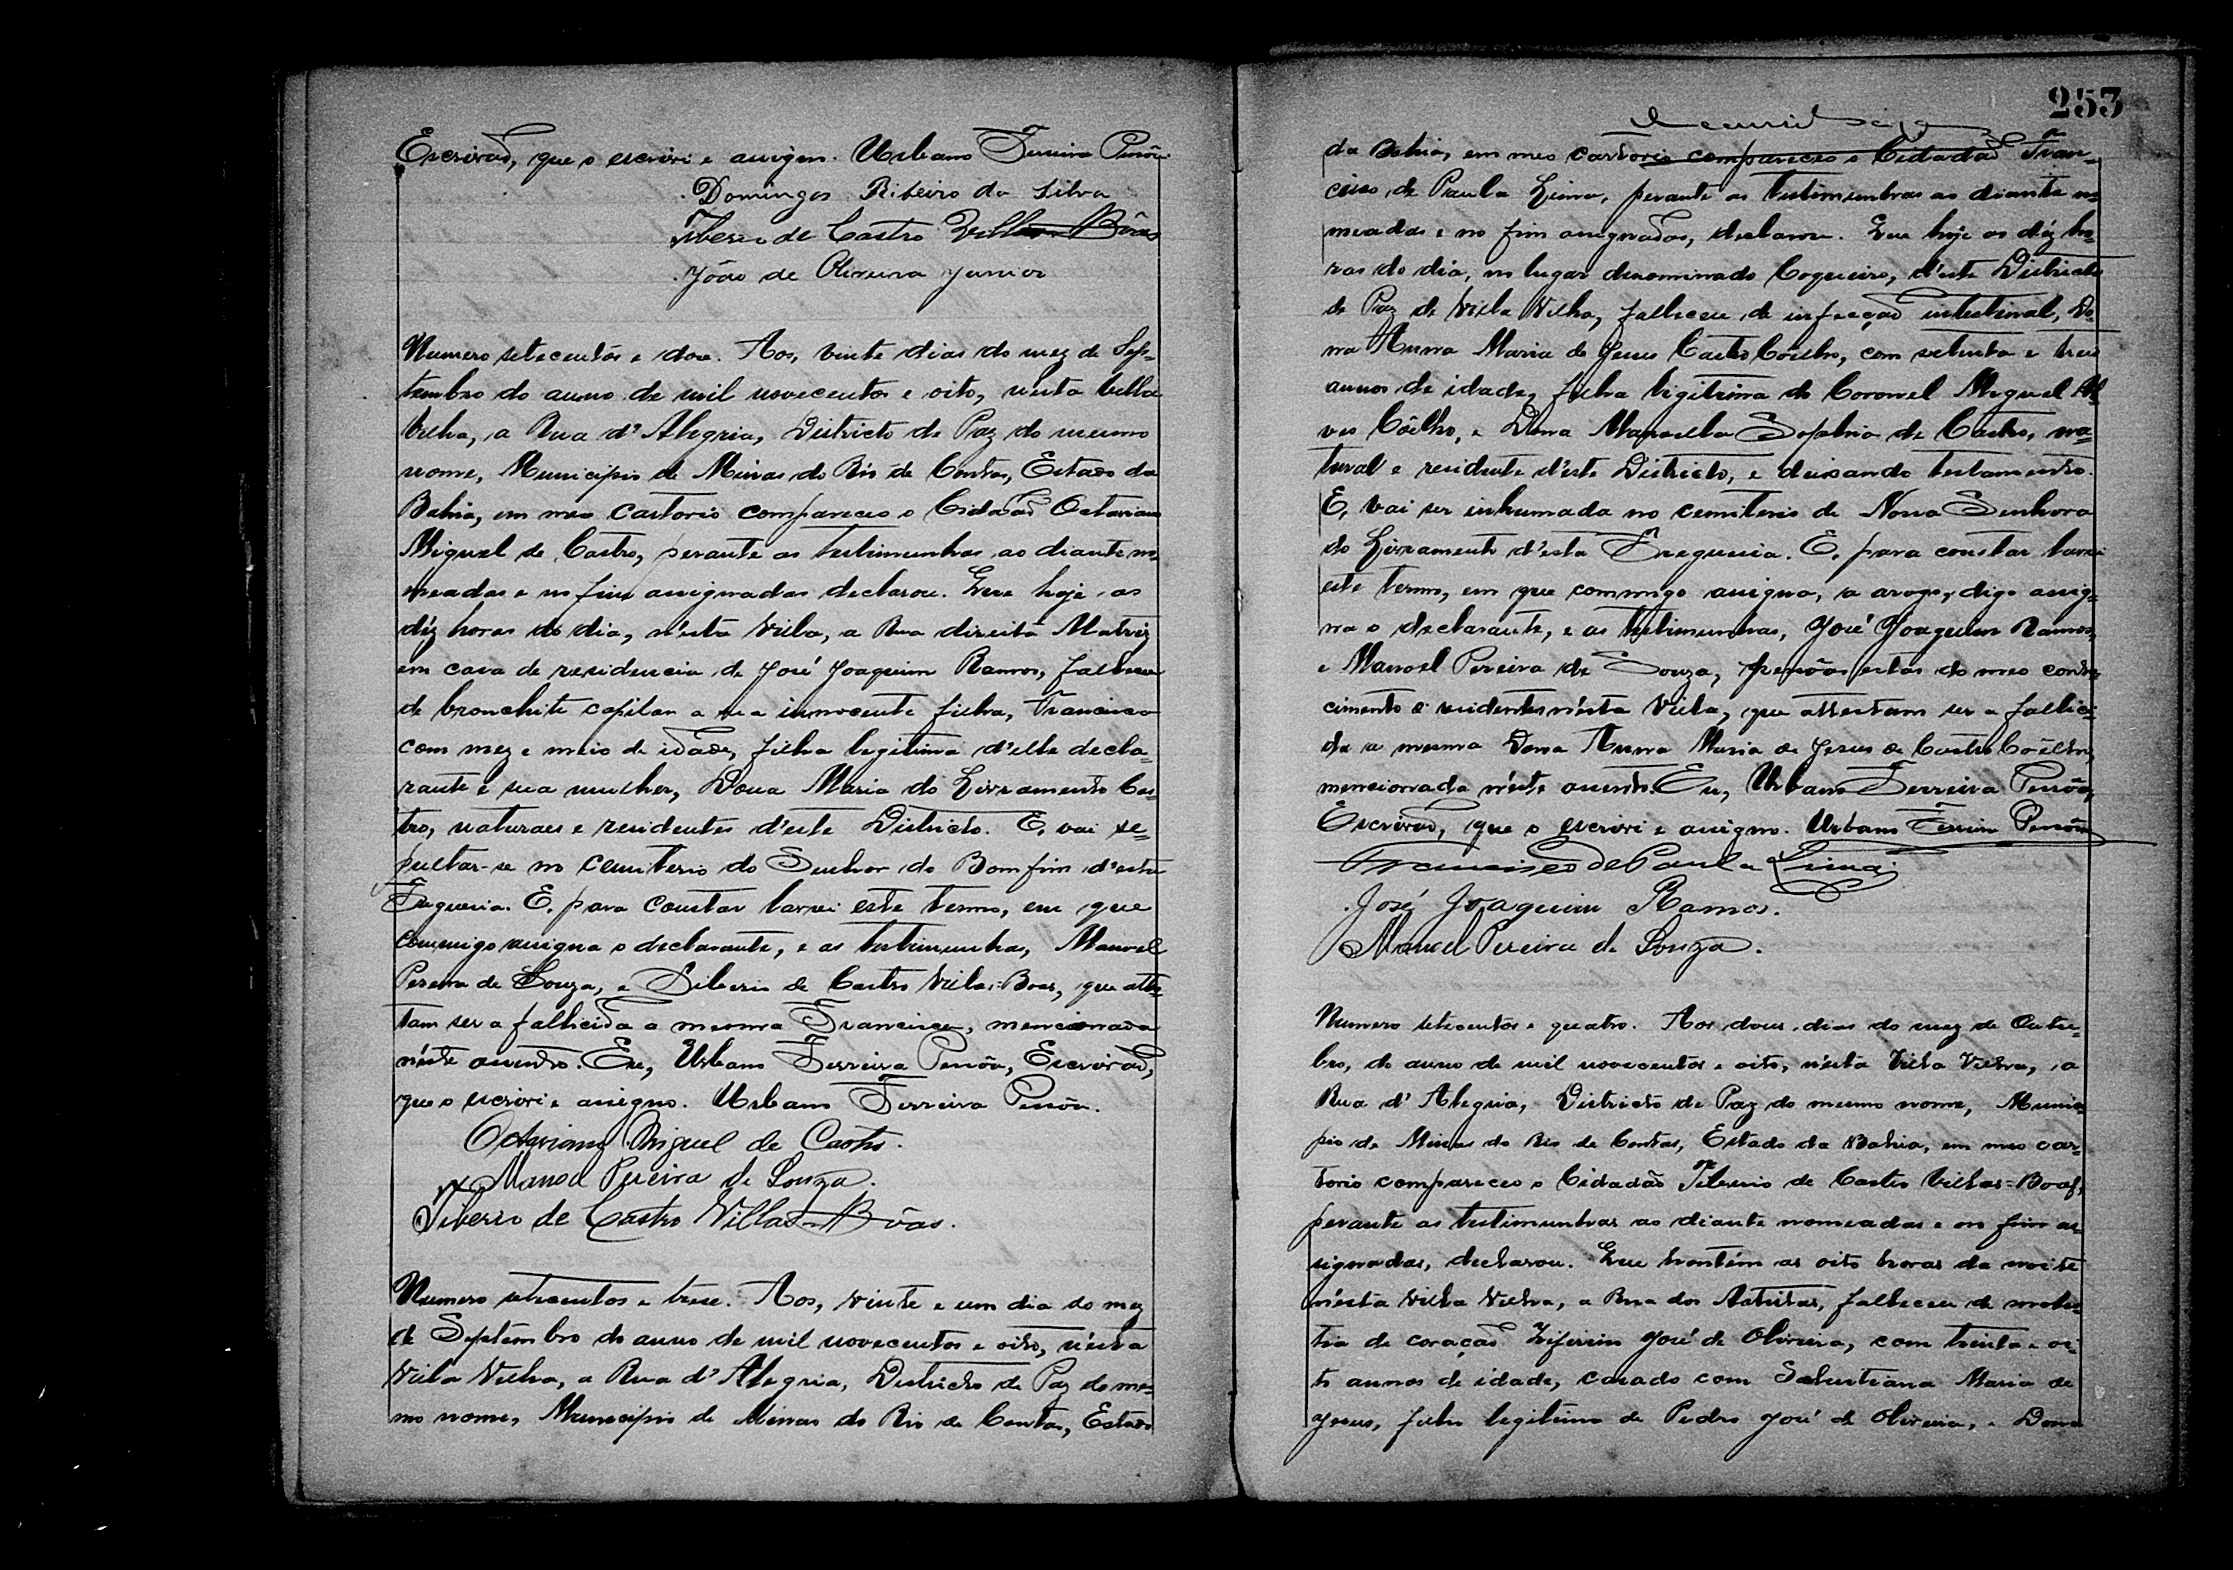 Escrivaõ, que o escrevi e assigno. Urbano Ferreira Pessôa
Domingos Ribeiro da Silva
Tiberio de Castro Villas Bôas
João de Oliveira Junior
Numero setecentos e doze. Aos, vinte dias do mez de Sep-
tembro do anno de mil novecentos e oito, n'esta Villa
Velha, a Rua d'Alegria, Districto de Paz do mesmo
nome, Municipio de Minas do Rio de Contas, Estado da
Bahia, em meo Cartorio compareceo o Cidadaõ Octaviano
Miguel de Castro, perante as testimunhas ao diante no-
meadas e no fim assignadas declarou. Que hoje as
déz horas do dia, n'esta Villa, a Rua direita Matriz
em casa de residencia de José Joaquim Ramos, falleceu
de bronchite capilar a sua innocente filha, Francisca
com mez e meio de idade, filha legitima d'elle decla-
rante e sua mulher, Dona Maria do Livramento Cas-
tro, naturaes e residentes d'este Districto. E, vai se-
pultar-se no Cemiterio do Senhor do Bomfim d'esta
Freguesia. E, para constar lavrei este termo, em que
commigo assigna o declarante, e as testimunhas, Manoel
Pereira de Souza, e Tiberio de Castro Villas-Boas, que attes-
tam ser a fallicida a mesma Francisca, mencionada
n'este assento. Eu, Urbano Ferreira Pessôa, Escrivaõ,
que o escrevi e assigno. Urbano Ferreira Pessôa.
Octaviano Miguel de Castro.
Manoel Pereira de Souza.
Tiberio de Castro Villas-Bôas.
Numero setecentos e trese. Aos, vinte e um dia do mez
de Septembro do anno de mil novecentos e oito, n'esta
Villa Velha, a Rua d'Alegria, Districto de Paz do mes-
mo nome, Municipio de Minas do Rio de Contas, Estado
253
da Bahia, em meo cartorio compareceo o Cidadaõ Fran-
cisco de Paula Lima, perante as testimunhas ao diante no-
meadas e no fim assignadas, declarou. Que hoje as déz ho-
ras do dia, no lugar denominado Coqueiro, d'este Districto
de Paz de Villa Velha, falleceu de infecçaõ intestinal, Do-
na Anna Maria de Jesus Castro Coêlho, com setenta e tres
annos de idade, filha ligitima do Coronel Miguel Al-
ves Coêlho, e Dona Manoella Sophia de Castro, na-
tural e residente d'este Districto, e deixando testamento.
E, vai ser inhumada no cemiterio de Nossa Senhora
do Livramento d'esta Freguesia. E, para constar lavrei
este termo, em que commigo assigna, a arogo, digo assig-
na o declarante, e as testimunhas, José Joaquim Ramos,
e Manoel Pereira de Souza, pessôas estas do meo conhe-
cimento e residentes n'esta Villa, que attestam ser a fallici-
da a mesma Dona Anna Maria de Jesus de Castro Coêlho,
mencionada n'este assento. Eu, Urbano Ferreira Pessôa,
Escrivaõ, que o escrevi e assigno. Urbano Ferreira Pessôa
Francisco de Paula Lima
José Joaquim Ramos.
Manoel Pereira de Souza.
Numero setecentos e quatro. Aos dous dias do mez de Outu-
bro, do anno de mil novecentos e oito, n'esta Villa Velha, a
Rua d'Alegria, Districto de Paz do mesmo nome, Munici-
pio de Minas do Rio de Contas, Estado da Bahia, em meo car-
torio compareceo o Cidadaõ Tiberio de Castro Villas-Boas,
perante as testimunhas ao diante nomeadas e no fim as-
signadas, declarou. Que hontem as oito horas da noite
n'esta Villa Velha, a Rua dos Artistas, falleceu de moles-
tia de coraçaõ Ziferino José de Oliveira, com trinta e oi-
to annos de idade, casado com Salustiana Maria de
Jesus, filho legitimo de Pedro José de Oliveira, e Dona